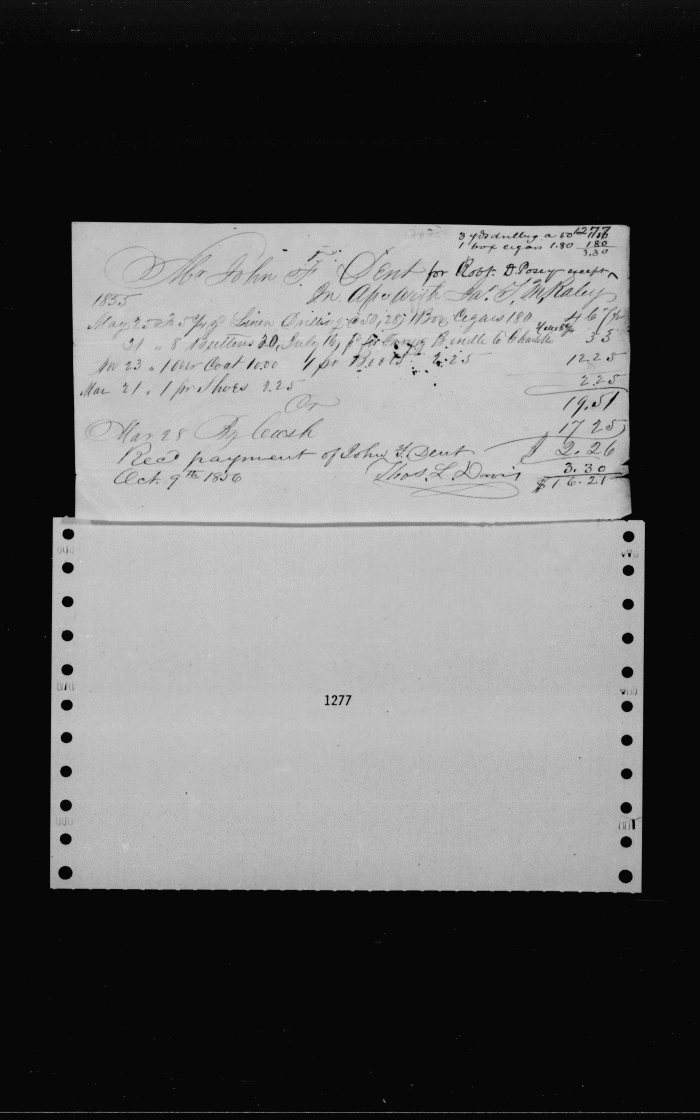 1277
3 yds drilling a 50 1.50
1 box cigars 1.80 1 80
3.30
Mr John F. Dent for Robt. D. Posey except
1855 In Apc with Jas. T. M. Raley
May 25 Linen Drilling Cegars 180 4 67
21 " 8 Buttons 20, July 14, Bundle to Charlotte 35
Nov 23 " 1 Over Coat 10.00 1 pr Boots 2.25 12.25
Mar 21 " 1 pr Shoes 2.25 2.25
19.51
Cr
Mar 28 By Cash 17 25
Recd payment of John F. Dent $ 2.26
Oct. 9th 1856 Thos. L. Davis 3.30
$16.21
1277